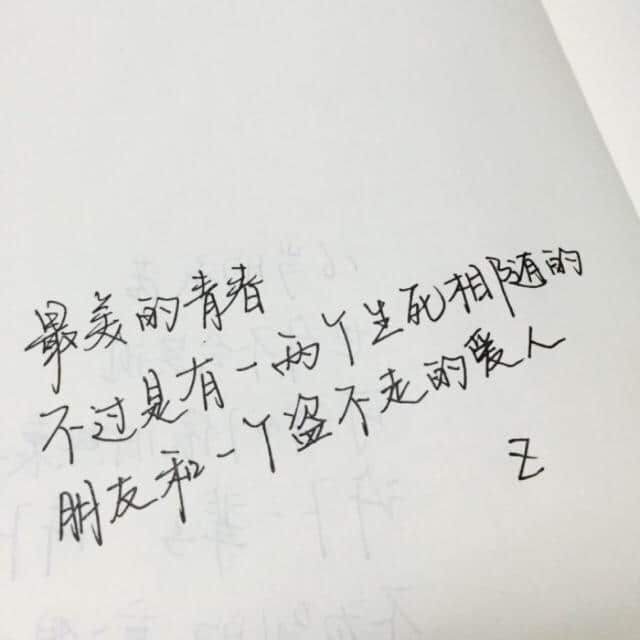 最美的青春
不过是有一两个生死相随的
朋友和一个盗不走的爱人
Z